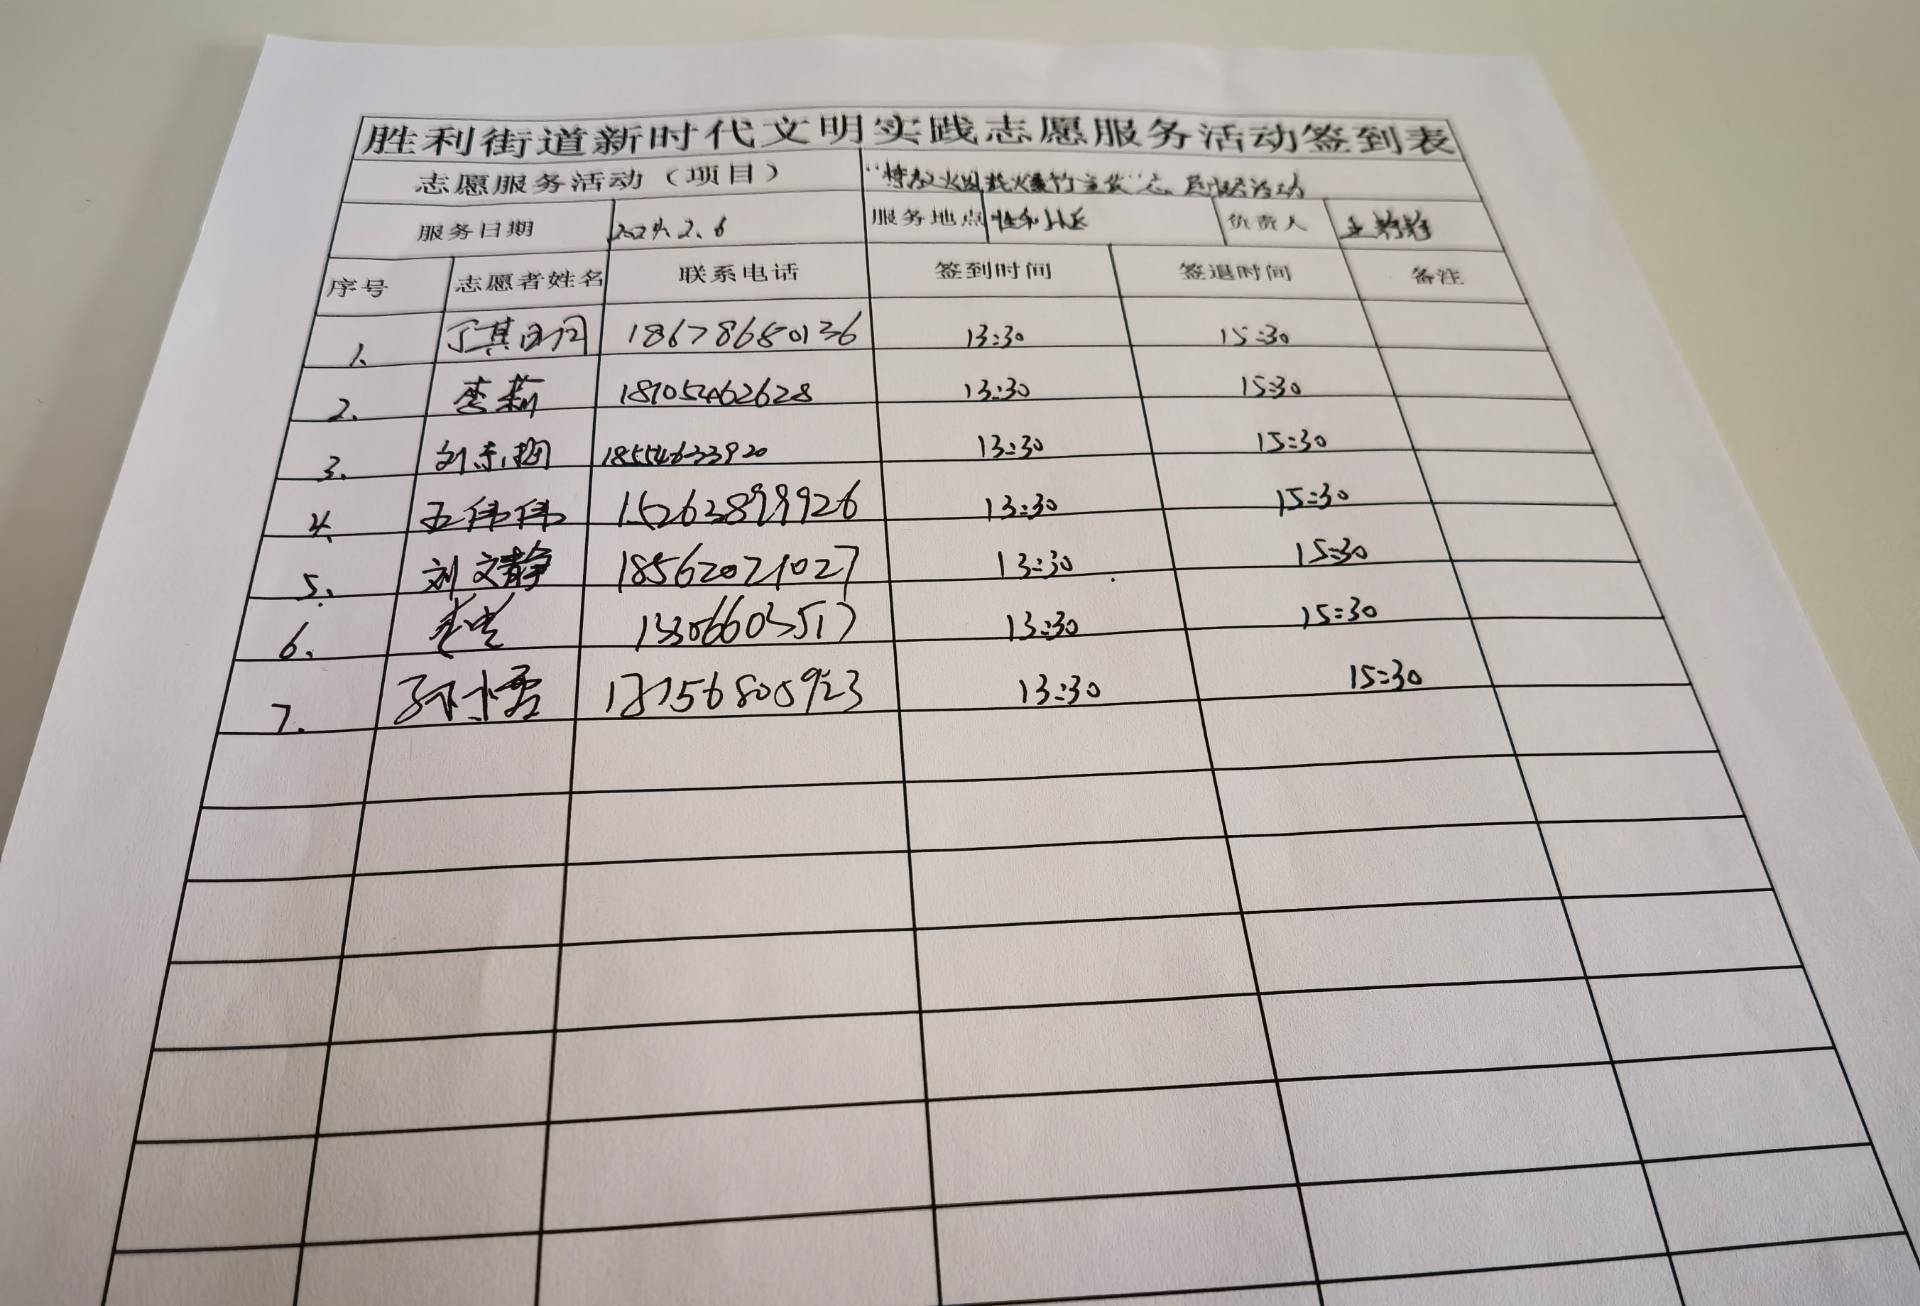 胜利街道新时代文明实践志愿服务活动签到表
志愿服务活动（项目） 志愿服务活动
服务日期 2024.2.6 服务地点 胜利社区 负责人
序号 志愿者姓名 联系电话 签到时间 签退时间 备注
1、 丁其 18678680136 13:30 15:30
2、 李莉 18705462628 13:30 15:30
3、 刘东梅 18554633920 13:30 15:30
4、 王伟伟 15263899926 13:30 15:30
5、 刘文静 18562021027 13:30 15:30
6、 13306603517 13:30 15:30
7、 孙小雪 13:30 15:30